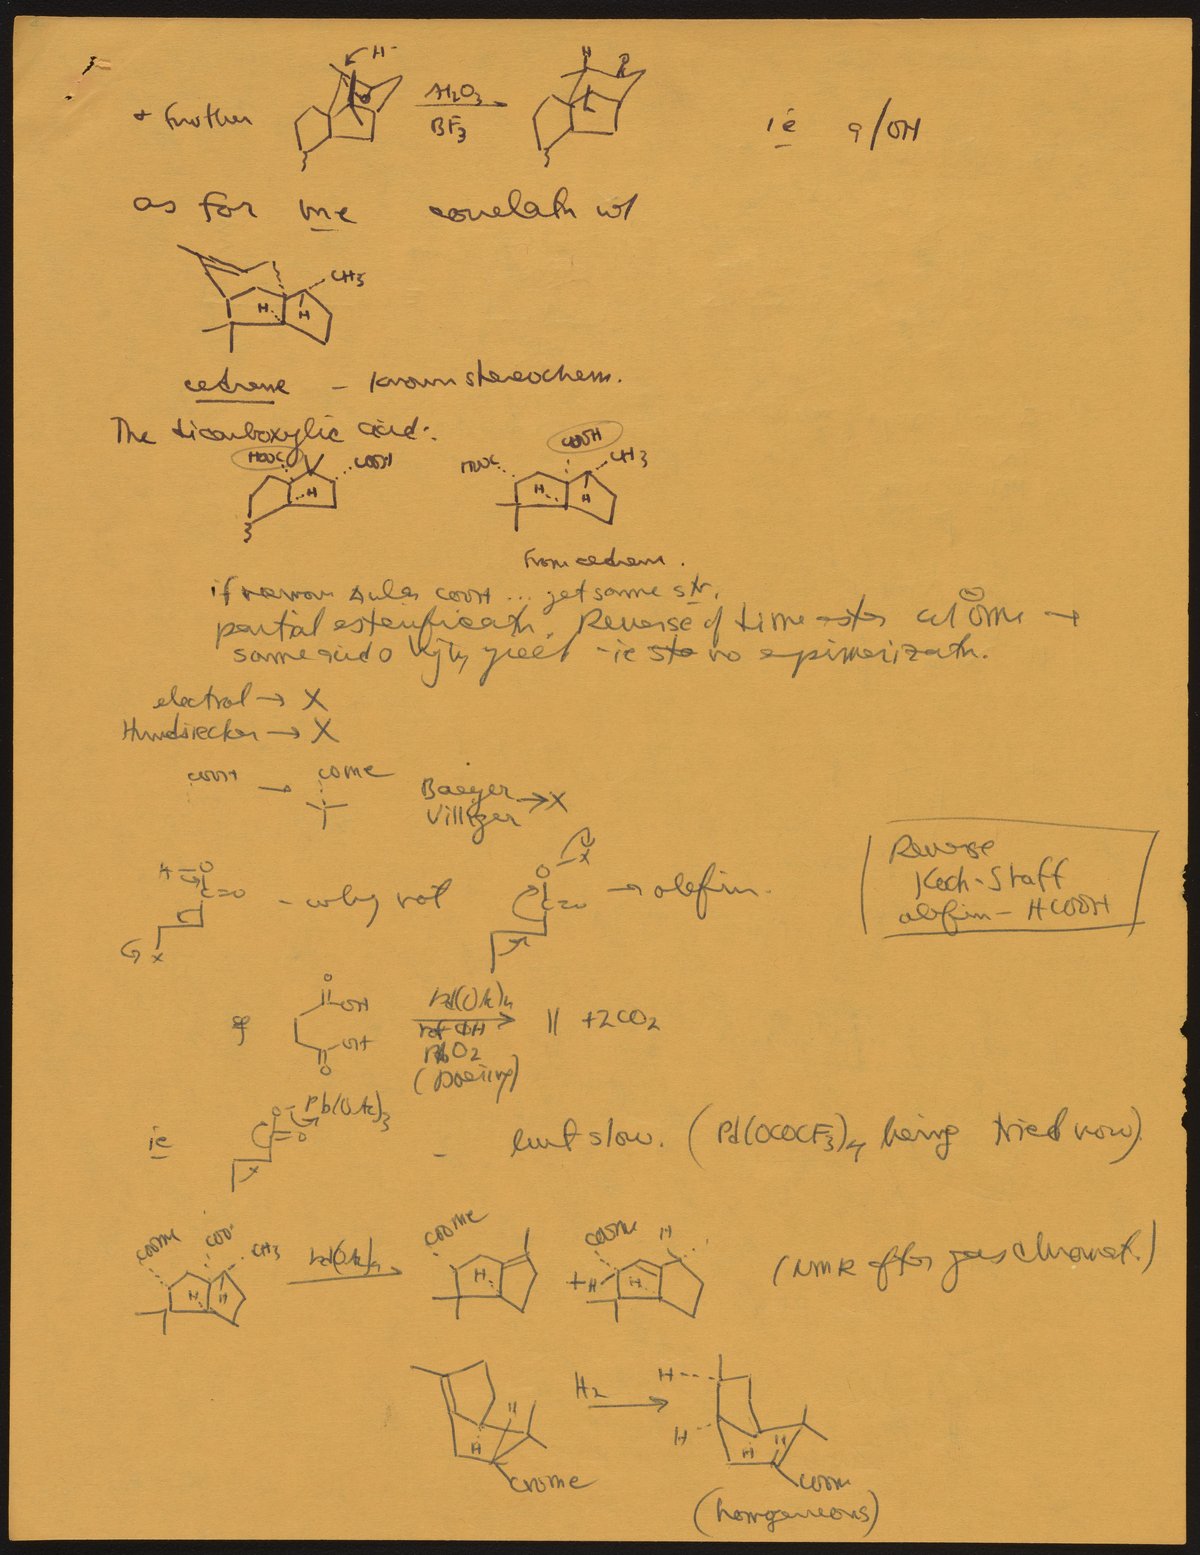 + further
H⁻
Al2O3
BF3
H
R
ie 9/OH
as for me correlatn w/
CH3
H
H
cedrene - known stereochem.
The dicarboxylic acid:
HOOC
COOH
H
HOOC
COOH
CH3
H
H
From cedrene.
if remove COOH ... get same str.
partial esterificatn. Reverse of time w/ ⁻OMe →
same acid yield - ie no epimerizatn.
electrol → X
Hunsdiecker → X
COOH → COMe
Baeyer
Villiger → X
H - O
C=O
X
- why not
O
X
C=O
→ olefin.
Reverse
Koch-Haaf
olefin - HCOOH
O
OH
OH
O
Pb(OAc)4
PbO2
(Doering)
|| + 2CO2
ie
O - Pb(OAc)3
=O
- but slow. (Pd(OCOCF3)4 being tried now)
COOMe
COO·
CH3
H
H
Pb(OAc)4
COOMe
H
+
COOMe
H
H
H
(NMR after gas chromat.)
H
H
COOMe
H2
H
H
H
H
COOMe
(homogeneous)